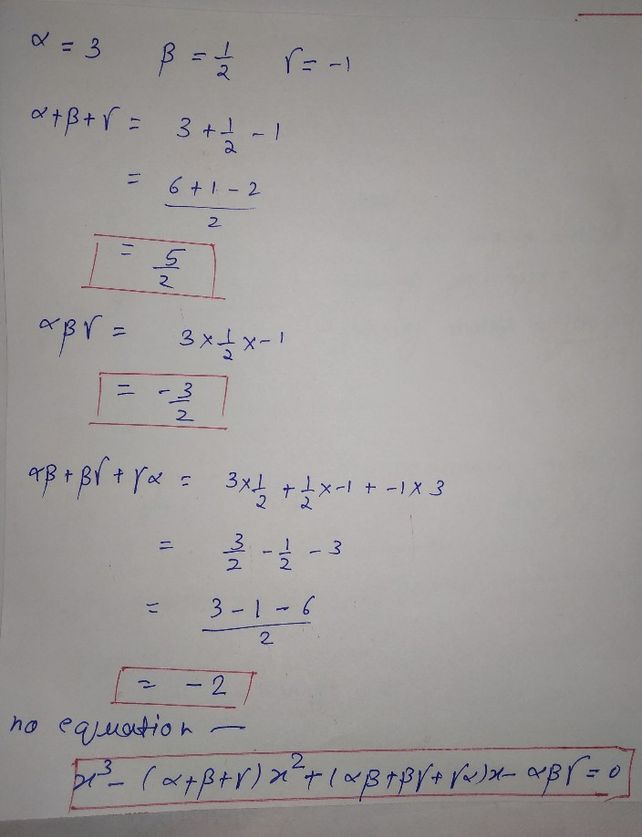 α = 3 β = 1/2 γ = -1
α+β+γ = 3 + 1/2 - 1
= 6+1-2/2
= 5/2
αβγ = 3×1/2×-1
= -3/2
αβ+βγ+γα = 3×1/2 + 1/2×-1 + -1×3
= 3/2 - 1/2 - 3
= 3-1-6/2
= -2
no equation —
x³ - (α+β+γ)x² + (αβ+βγ+γα)x - αβγ = 0